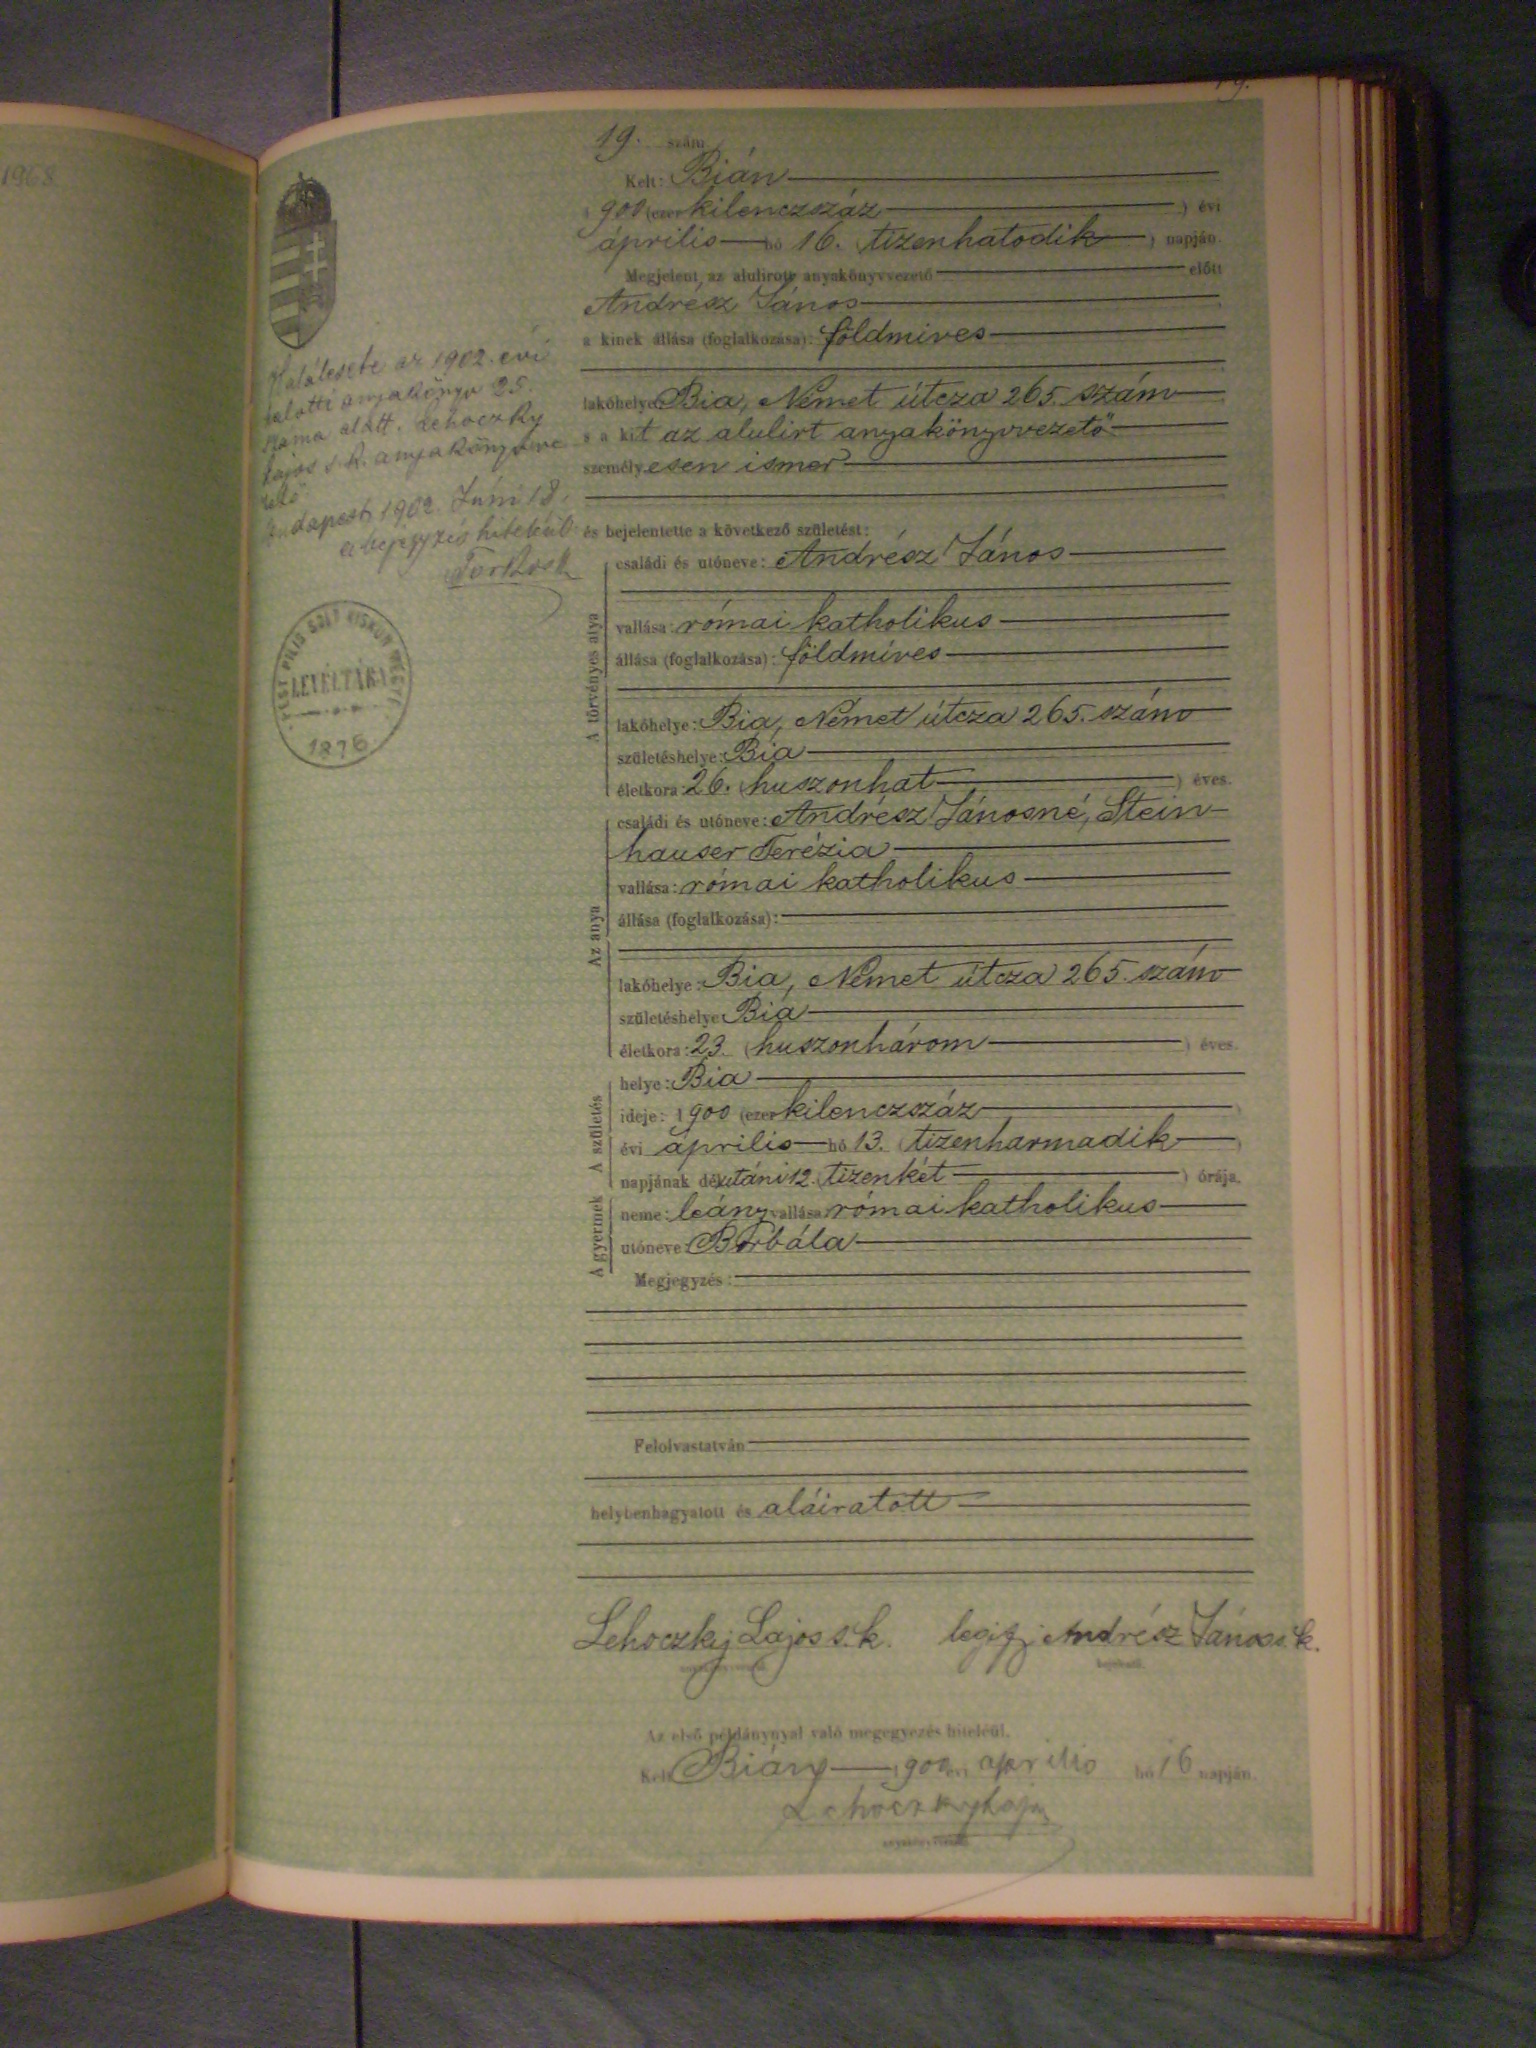 1968
19.
19. szám
Kelt: Bián
1900 (ezer kilenczszáz ) évi
április hó 16. (tizenhatodik ) napján.
Megjelent az alulirott anyakönyvvezető előtt
Andrész János
a kinek állása (foglalkozása): földmives
lakóhelye Bia, Német útcza 265. szám
s a kit az alulirt anyakönyvvezető
személyesen ismer
és bejelentette a következő születést:
A törvényes atya
családi és utóneve: Andrész János
vallása: római katholikus
állása (foglalkozása): földmíves
lakóhelye: Bia, Német útcza 265. szám
születéshelye: Bia
életkora: 26. (huszonhat ) éves.
Az anya
családi és utóneve: Andrész Jánosné, Stein-
hauser Terézia
vallása: római katholikus
állása (foglalkozása):
lakóhelye: Bia, Német útcza 265. szám
születéshelye Bia
életkora: 23. (huszonhárom ) éves.
A születés
helye: Bia
ideje: 1900 (ezer kilenczszáz )
évi április hó 13. (tizenharmadik )
napjának délutáni 12. (tizenkét ) órája.
A gyermek
neme: leány vallása: római katholikus
utóneve: Borbála
Megjegyzés:
Felolvastatván
helybenhagyatott és aláiratott
Lehoczky Lajos s.k. Andrész János s.k.
Az első példánynyal való megegyezés hiteléül.
Kelt Bián 1900 évi április hó 16 napján.
Lehoczky Lajos
Halálesete az 1902. évi
halotti anyakönyv 25.
száma alatt. Lehoczky
Lajos s.k. anyakönyvve
zető
Budapest, 1902. Juni 18.
a bejegyzés hiteléül:
PEST PILIS SOLT KISKUN MEGYE
LEVÉLTÁRA
1876